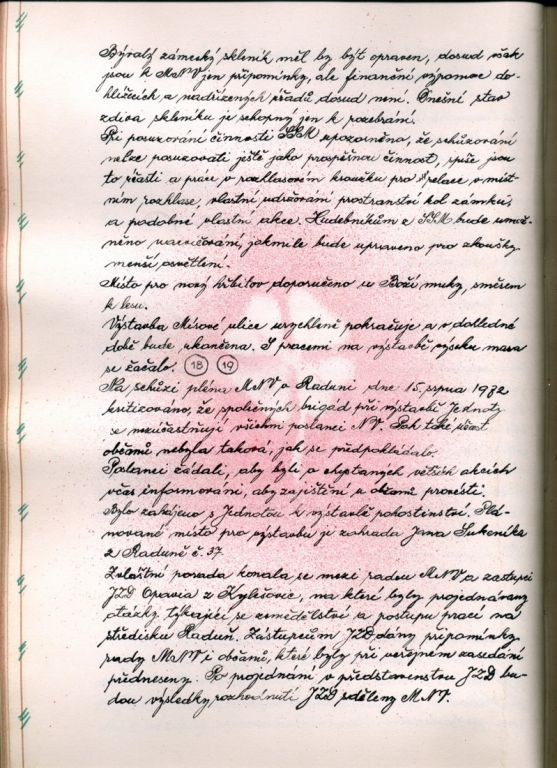 Bývalý zámecký skleník měl by být opraven, dosud však
jsou k MNV jen připomínky, ale finanční výpomoc do-
hlížecích a nadřízených úřadů dosud není. Dnešní stav
zdiva skleníku je schopný jen k pozebrání.
Při posuzování činnosti SSM upozorněno, že schůzování
nelze posuzovati ještě jako prospěšnou činnost, spíše jsou
to účasti a práce v rozhlasovém kroužku pro relace v míst-
ním rozhlase, vlastní udržování prostranství kol zámku,
a podobné vlastní akce. Hudebníkům z SSM bude umož-
něno nacvičování, jakmile bude upraveno pro zkoušky
menší osvětlení.
Místo pro nový hřbitov doporučeno u Boží muky, směrem
k lesu.
Výstavba Mírové ulice urychleně pokračuje a v dohledné
době bude ukončena. S pracemi na výstavbě výseku masa
se začalo. 18 19
Na schůzi pléna MNV v Raduni dne 15. srpna 1982
kritizováno, že společných brigád při výstavbě Jednoty
se nezúčastňují všichni poslanci NV. Pak také účast
občanů nebyla taková, jak se předpokládalo.
Poslanci žádali, aby byli o chystaných větších akcích
včas informováni, aby zajištění u občanů provésti.
Bylo zahájeno s Jednotou k výstavbě pohostinství. Plá-
nované místo pro výstavbu je zahrada Jana Sukeníka
z Raduně č. 37.
Zvláštní porada konala se mezi radou MNV a zástupci
JZD Opavia z Kylešovic, na které byly projednávány
otázky, týkající se zemědělství a postupu prací na
středisku Raduň. Zástupcům JZD dány připomínky
rady MNV i občanů, které byly při veřejném zasedání
předneseny. Po projednání v představenstvu JZD bu-
dou výsledky rozhodnutí JZD sděleny MNV.